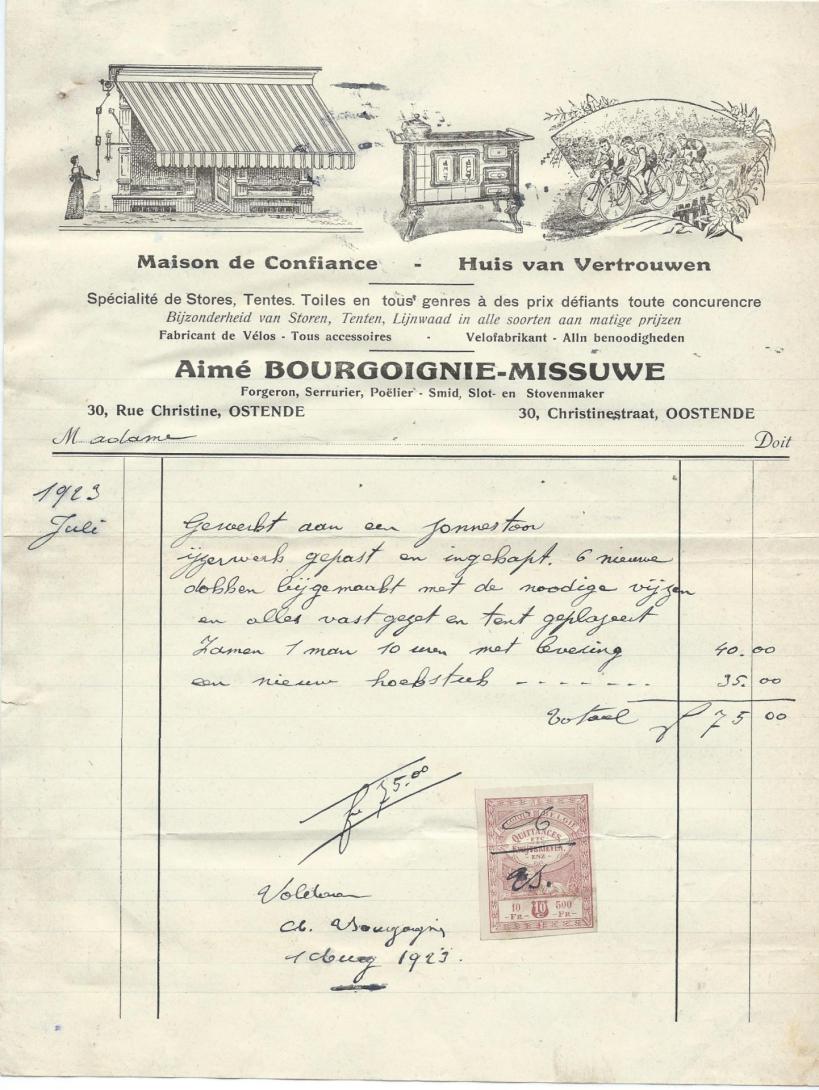 Maison de Confiance - Huis van Vertrouwen
Spécialité de Stores, Tentes. Toiles en tous genres à des prix défiants toute concurencre
Bijzonderheid van Storen, Tenten, Lijnwaad in alle soorten aan matige prijzen
Fabricant de Vélos - Tous accessoires - Velofabrikant - Alln benoodigheden
Aimé BOURGOIGNIE-MISSUWE
Forgeron, Serrurier, Poëlier - Smid, Slot- en Stovenmaker
30, Rue Christine, OSTENDE 30, Christinestraat, OOSTENDE
Madame Doit
1923
Juli Gewerkt aan een zonnestoor
ijzerwerk gepast en ingekapt. 6 nieuwe
dokken bijgemaakt met de noodige vijzen
en alles vast gezet en tent geplazeert
Zamen 1 man 10 uren met levering 40.00
een nieuw hoekstuk - - - - - - - 35.00
Totaal fr 75 00
fr 75.00
QUITTANCES
ETC
KWIJTBRIEVEN
ENZ
10 10 500
-FR- -FR-
Voldaan
A. Bourgoignie
1 Aug 1923.